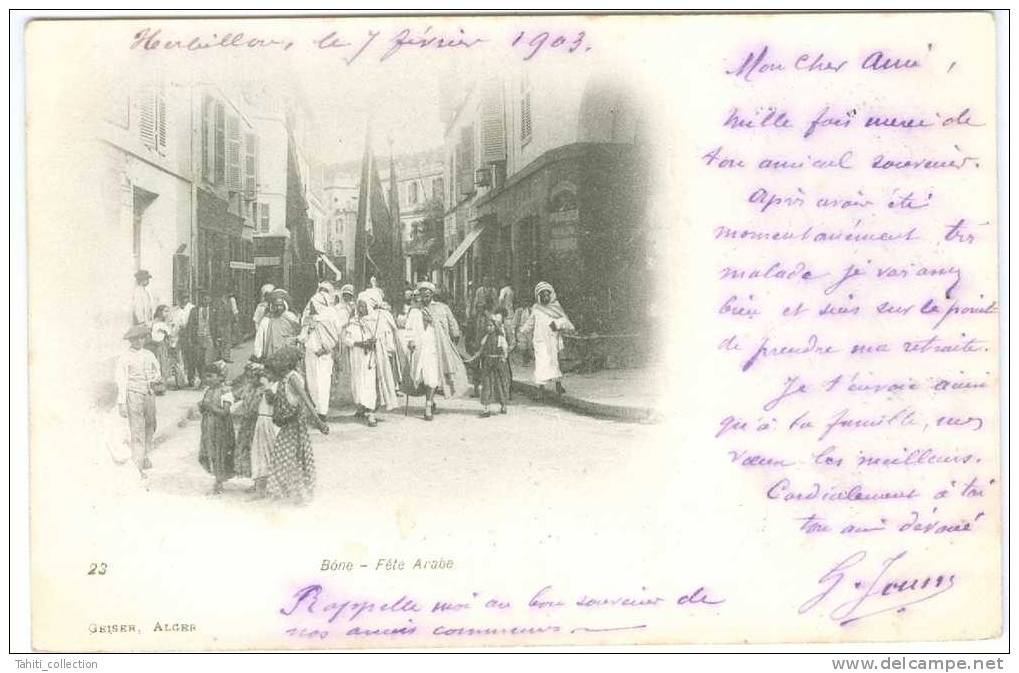 Herbillon, le 7 février 1903.
Mon cher ami,
Mille fois merci de
ton amical souvenir.
Après avoir été
momentanément très
malade je vais assez
bien et suis sur le point
de prendre ma retraite.
Je t'envoie ainsi
qu'à ta famille, mes
vœux les meilleurs.
Cordialement à toi
ton ami dévoué
G.
Rappelle moi au bon souvenir de
nos amis communs.
23
Bône - Fête Arabe
GEISER, ALGER
Tahiti_collection
www.delcampe.net